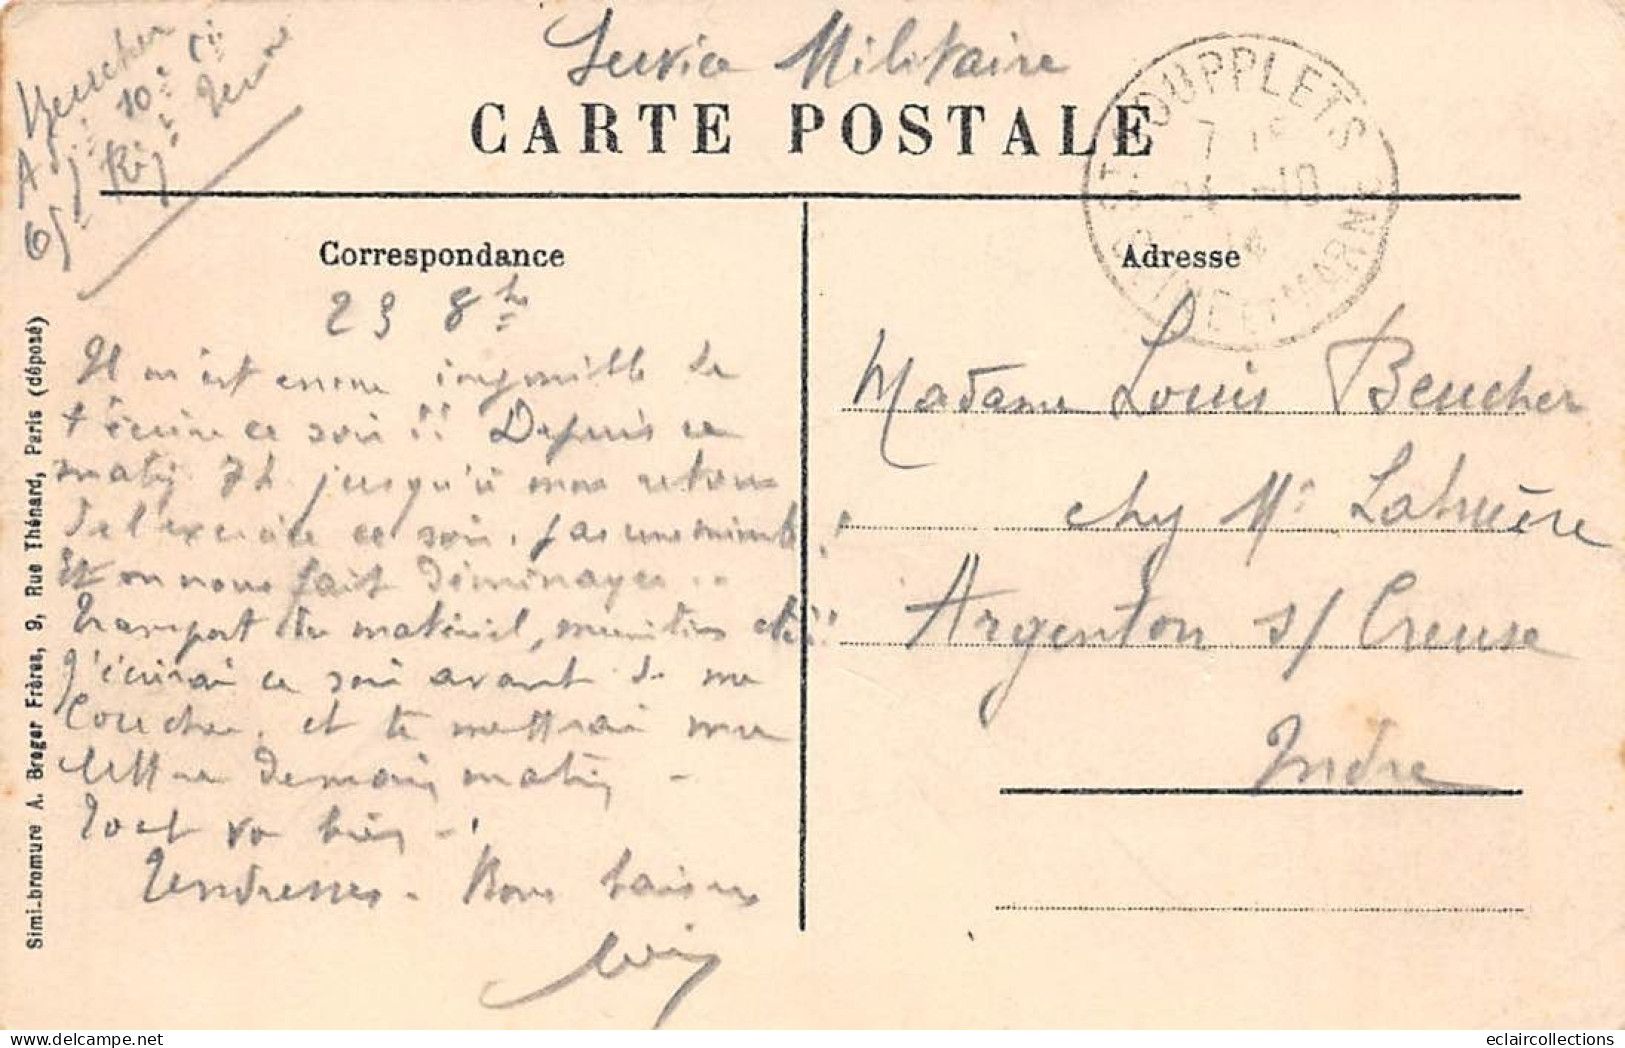 Service Militaire
Beucher
10e Cie
65 Rgt Terr
CARTE POSTALE
ST SOUPPLETS
7
24 -10
SEINE ET MARNE
Correspondance
Adresse
23 8bre
Il m'est encore impossible de
t'écrire ce soir !! Depuis ce
matin 7h jusqu'à mon retour
de l'exercice ce soir, pas une minute !
Et on nous fait déménager ..
Transport du matériel, munitions etc !!
J'écrirai ce soir avant de me
coucher, et te mettrai ma
lettre demain matin -
Tout va bien - !
Tendresses - Bons baisers
Louis
Madame Louis Beucher
chez Mr
Argenton s/ Creuse
Indre
Simi-bromure A. Breger Frères, 9, Rue Thénard, Paris (déposé)
eclaircollections